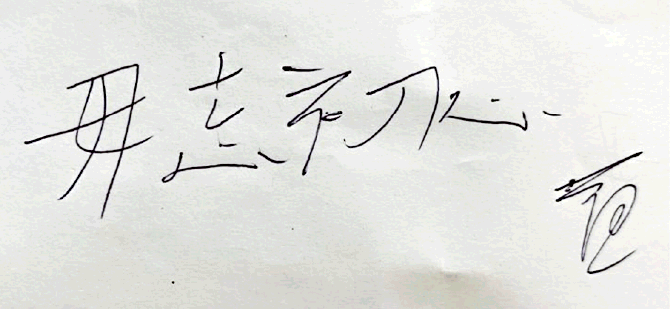 毋忘初心